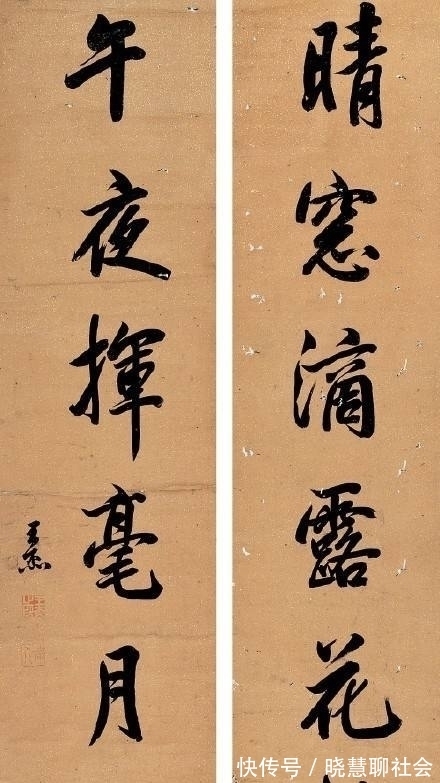 晴窓滴露花
午夜揮毫月
王杰
快传号 / 晓慧聊社会